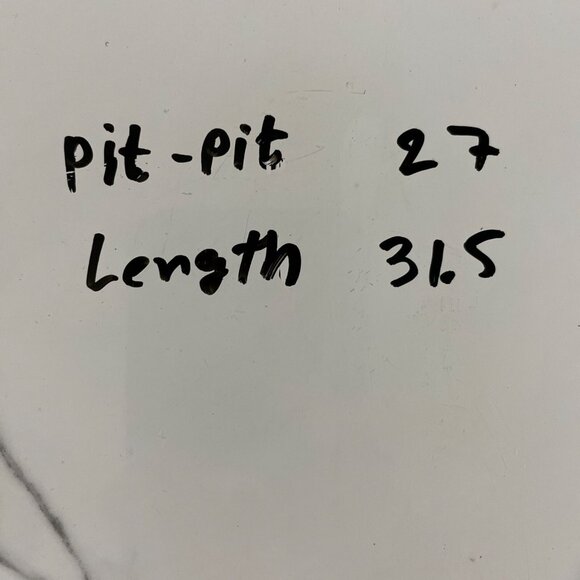 pit-pit 27
Length 31.5